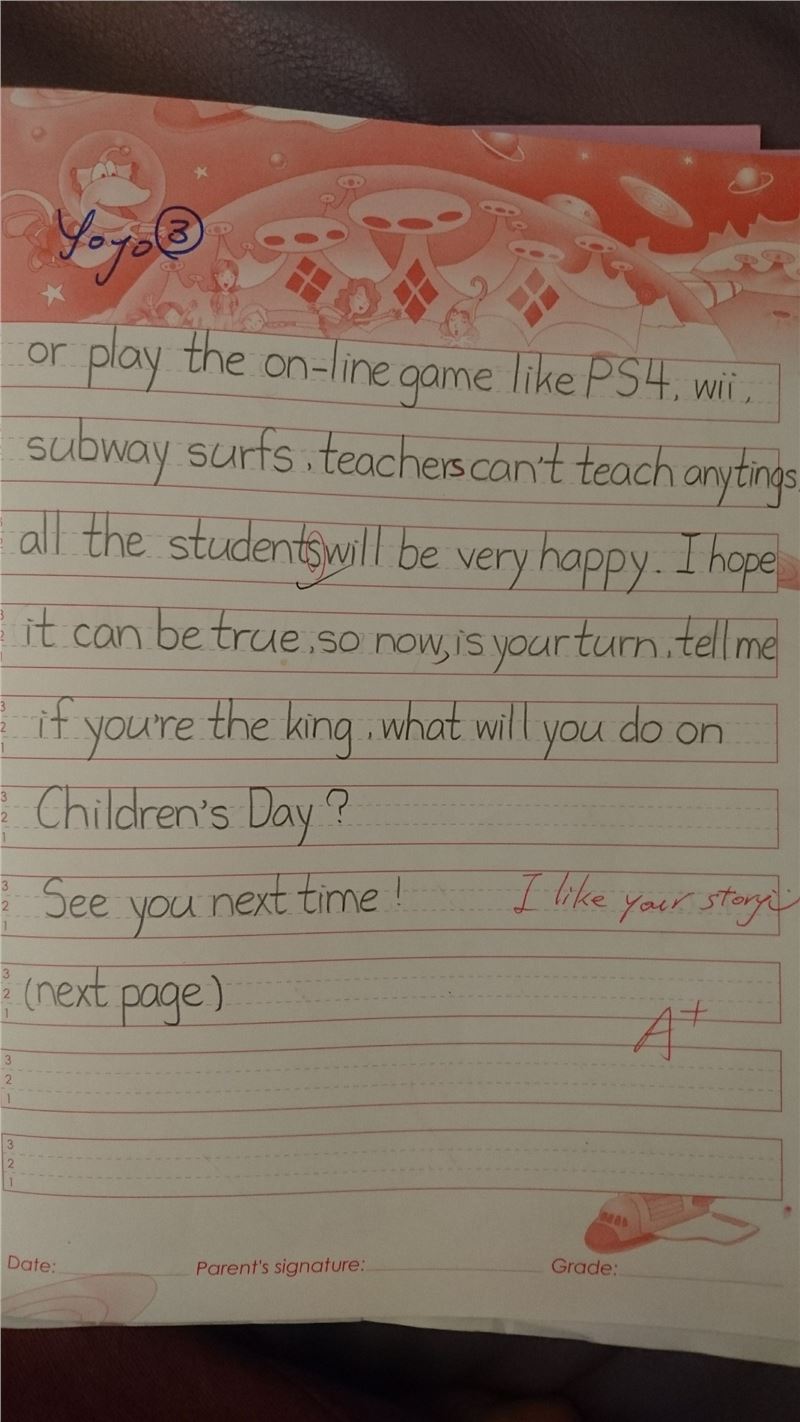 Yoyo ③
or play the on-line game like PS4, wii,
subway surfs, teachers can't teach anytings,
all the students will be very happy. I hope
it can be true, so now, is your turn, tell me
if you're the king, what will you do on
Children's Day?
See you next time! I like your story
(next page)
A+
3
2
1
3
2
1
3
2
1
3
2
1
3
2
1
3
2
1
3
2
1
Date: Parent's signature: Grade: